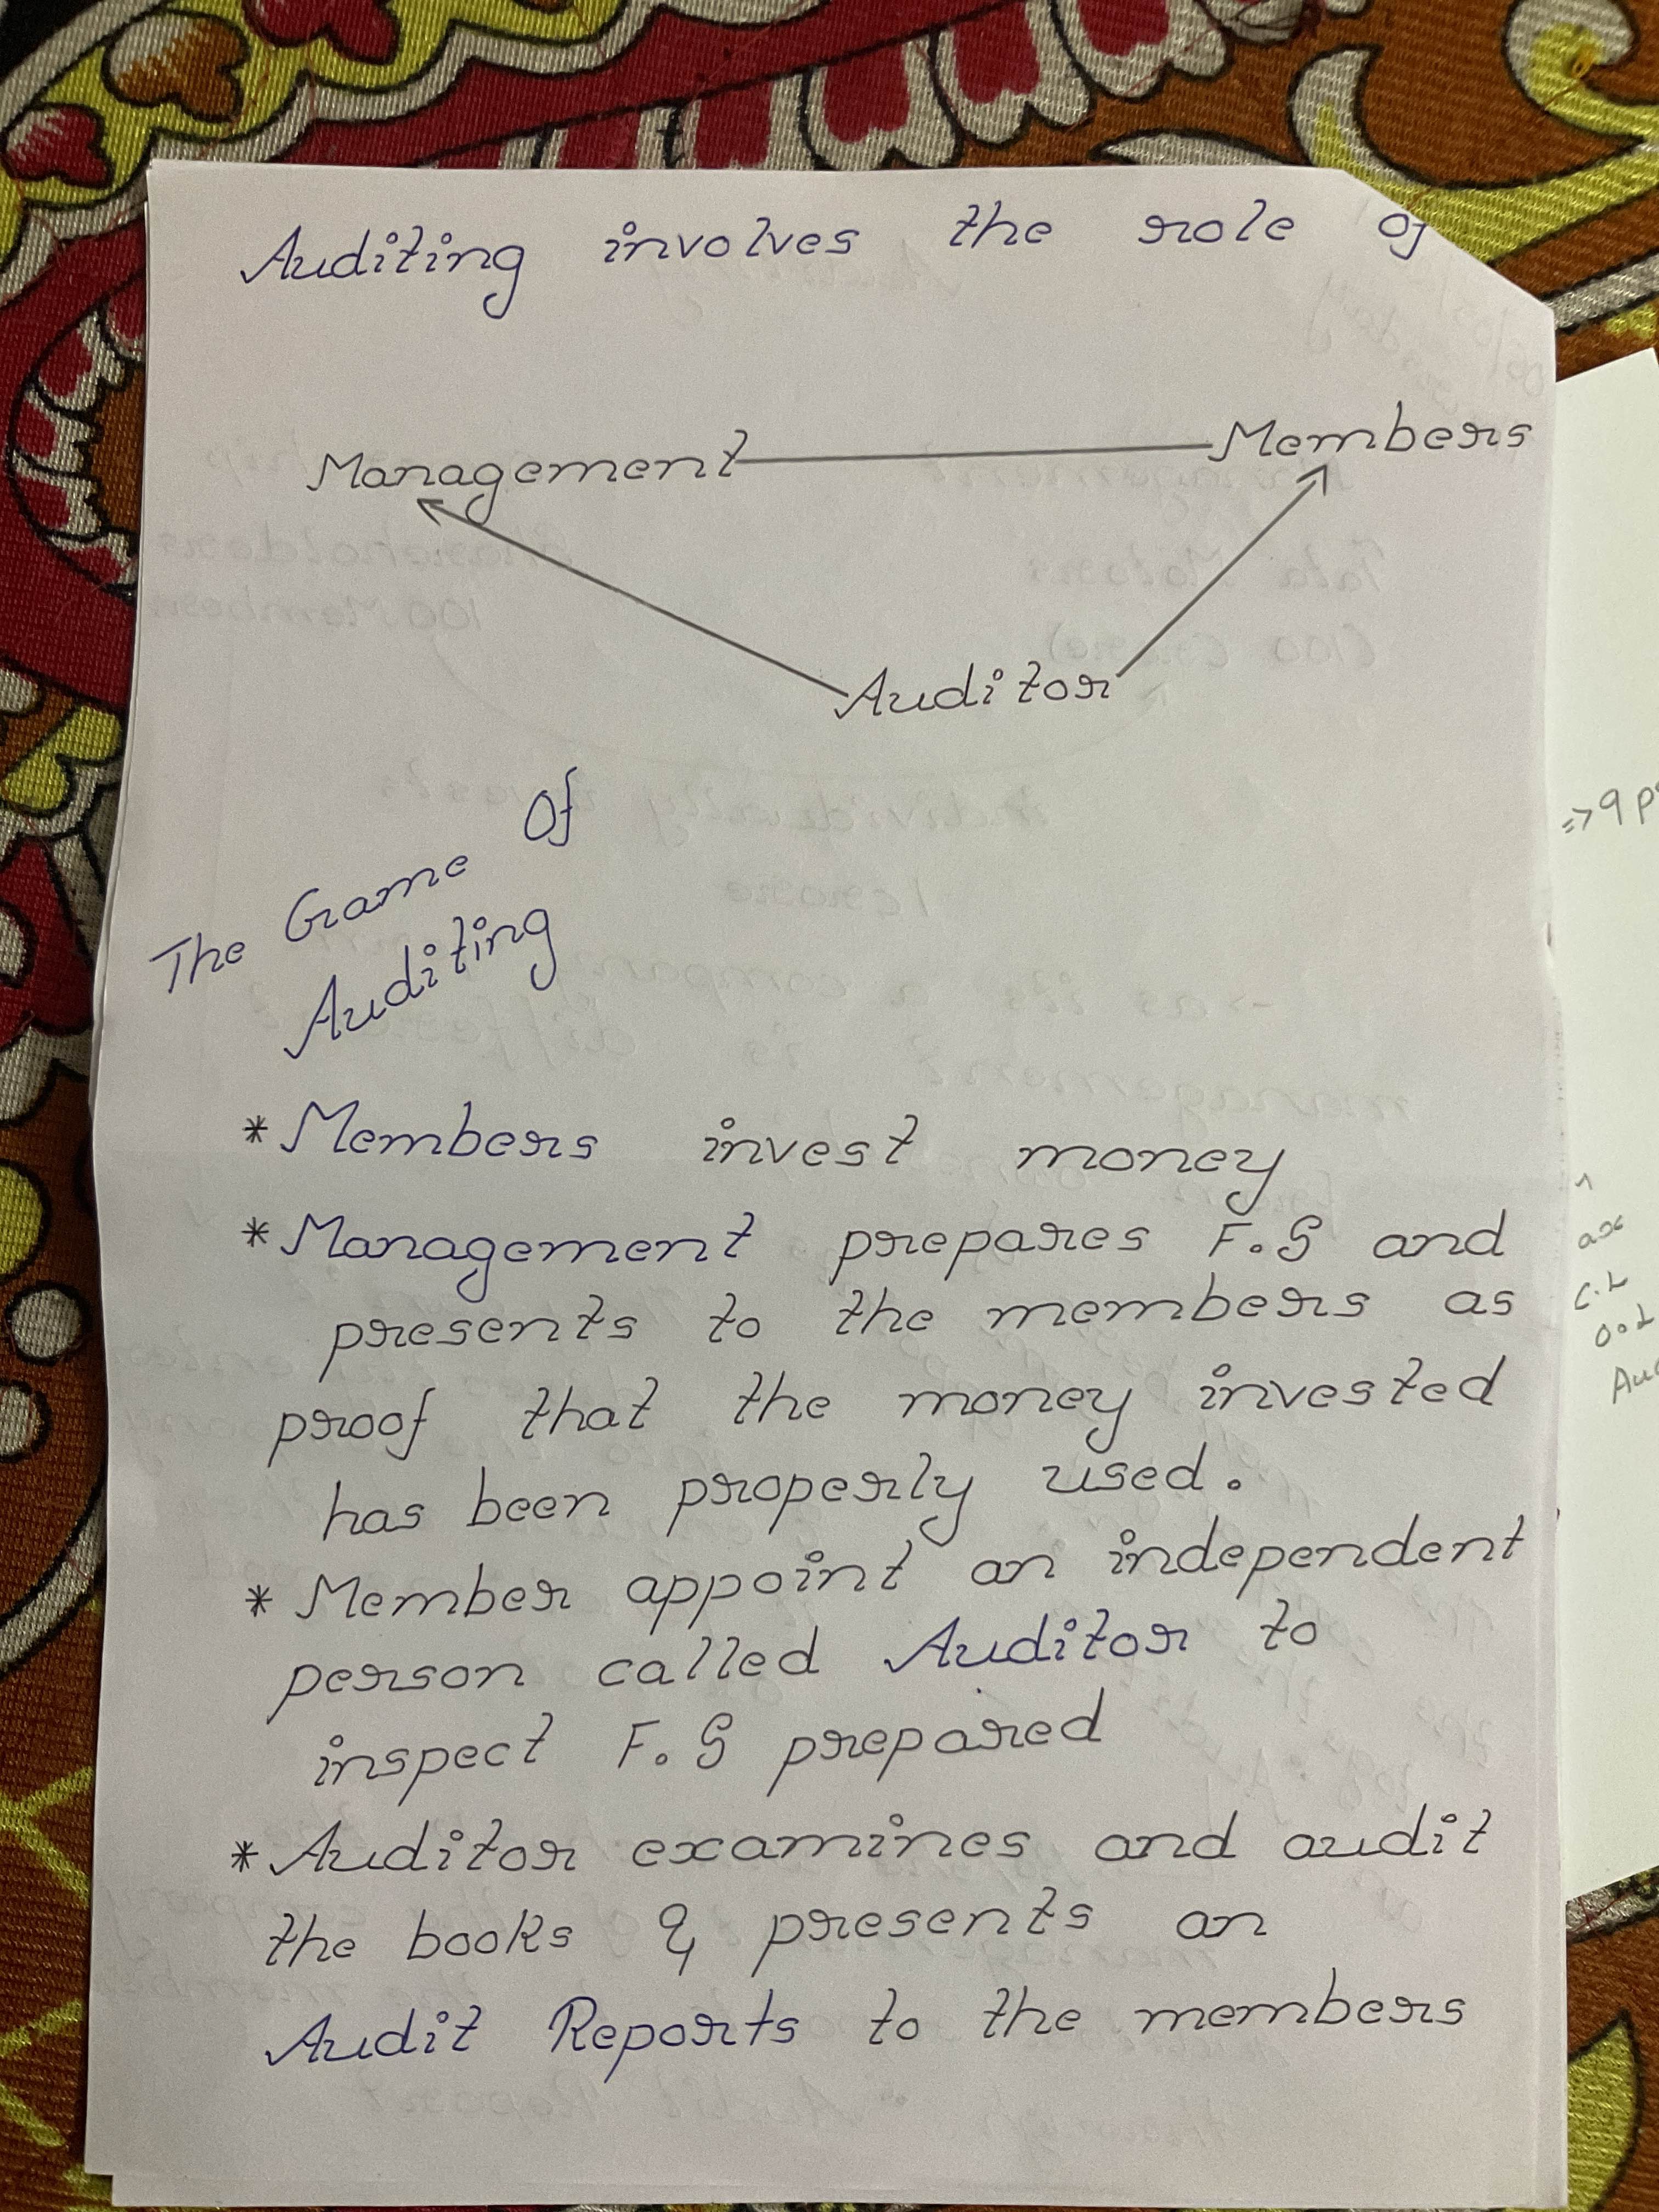 Auditing involves the role of
Management Members
Auditor
The Game Of
Auditing
* Members invest money
* Management prepares F.S and
presents to the members as
proof that the money invested
has been properly used.
* Member appoint an independent
person called Auditor to
inspect F.S prepared
* Auditor examines and audit
the books & presents an
Audit Reports to the members
=> 9
C.L